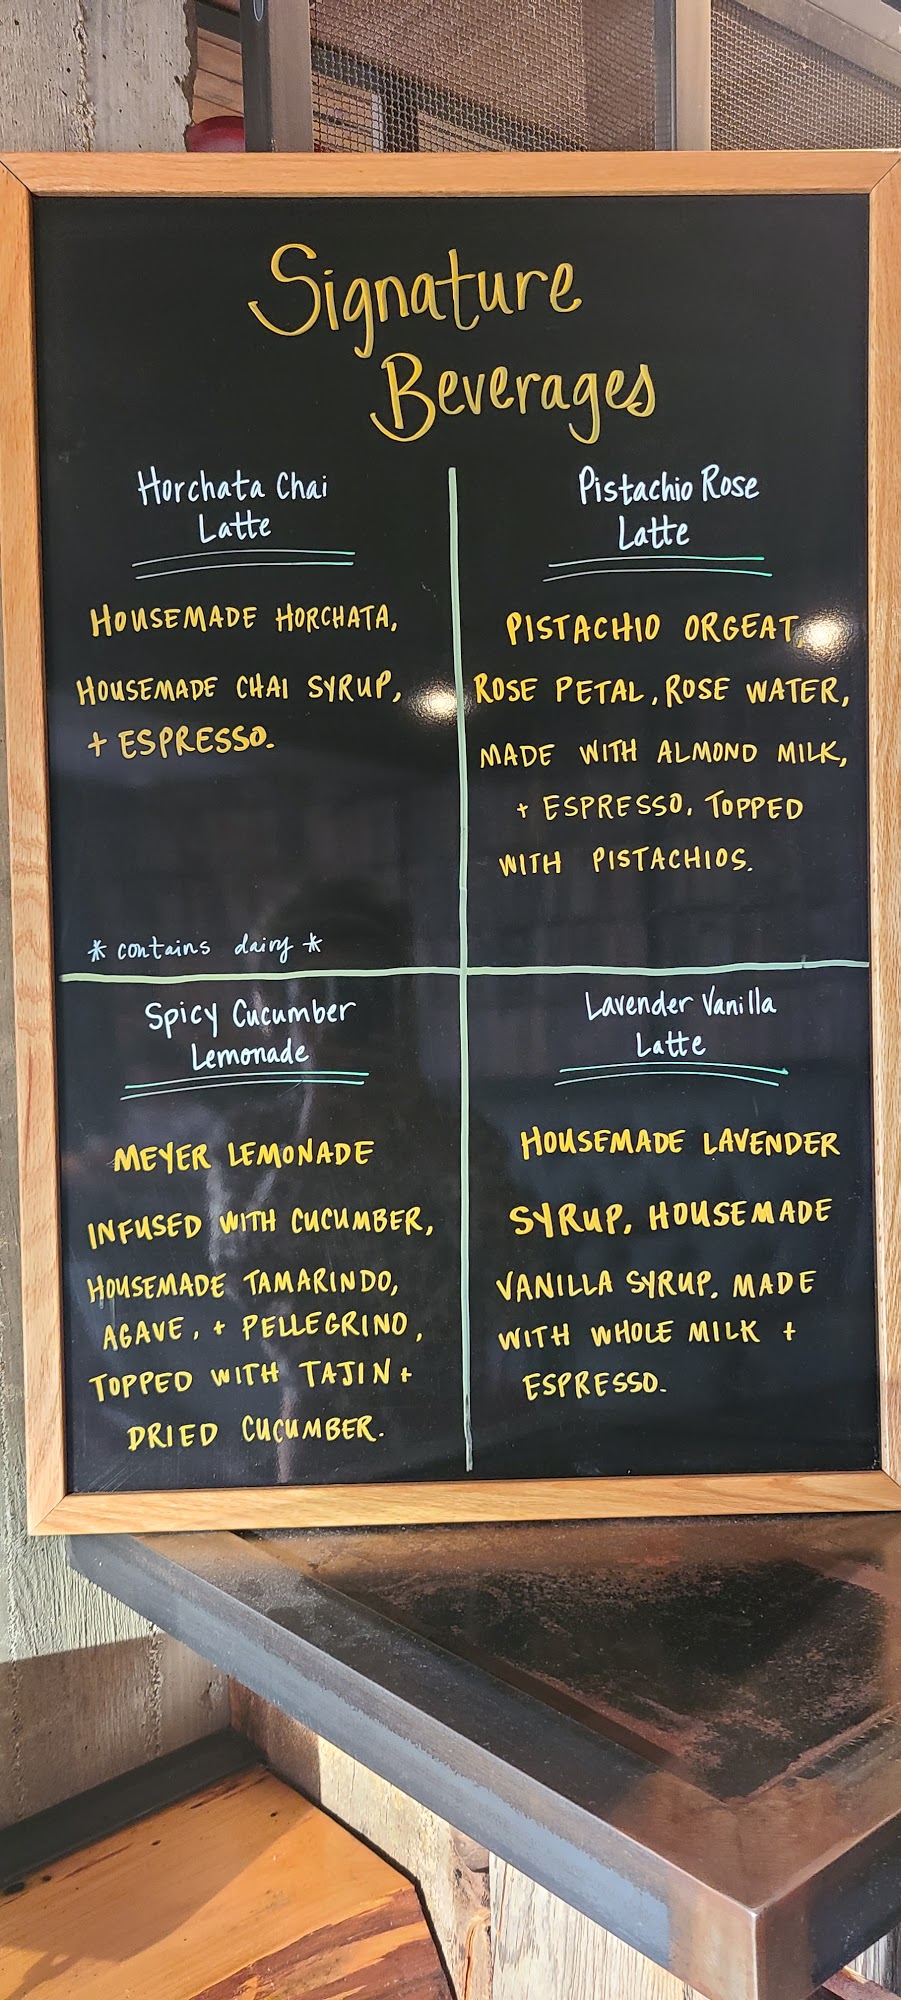 Signature
Beverages
Horchata Chai
Latte
HOUSEMADE HORCHATA,
HOUSEMADE CHAI SYRUP,
+ ESPRESSO.
* contains dairy *
Pistachio Rose
Latte
PISTACHIO ORGEAT,
ROSE PETAL, ROSE WATER,
MADE WITH ALMOND MILK,
+ ESPRESSO. TOPPED
WITH PISTACHIOS.
Spicy Cucumber
Lemonade
MEYER LEMONADE
INFUSED WITH CUCUMBER,
HOUSEMADE TAMARINDO,
AGAVE, + PELLEGRINO,
TOPPED WITH TAJIN +
DRIED CUCUMBER.
Lavender Vanilla
Latte
HOUSEMADE LAVENDER
SYRUP, HOUSEMADE
VANILLA SYRUP. MADE
WITH WHOLE MILK +
ESPRESSO.